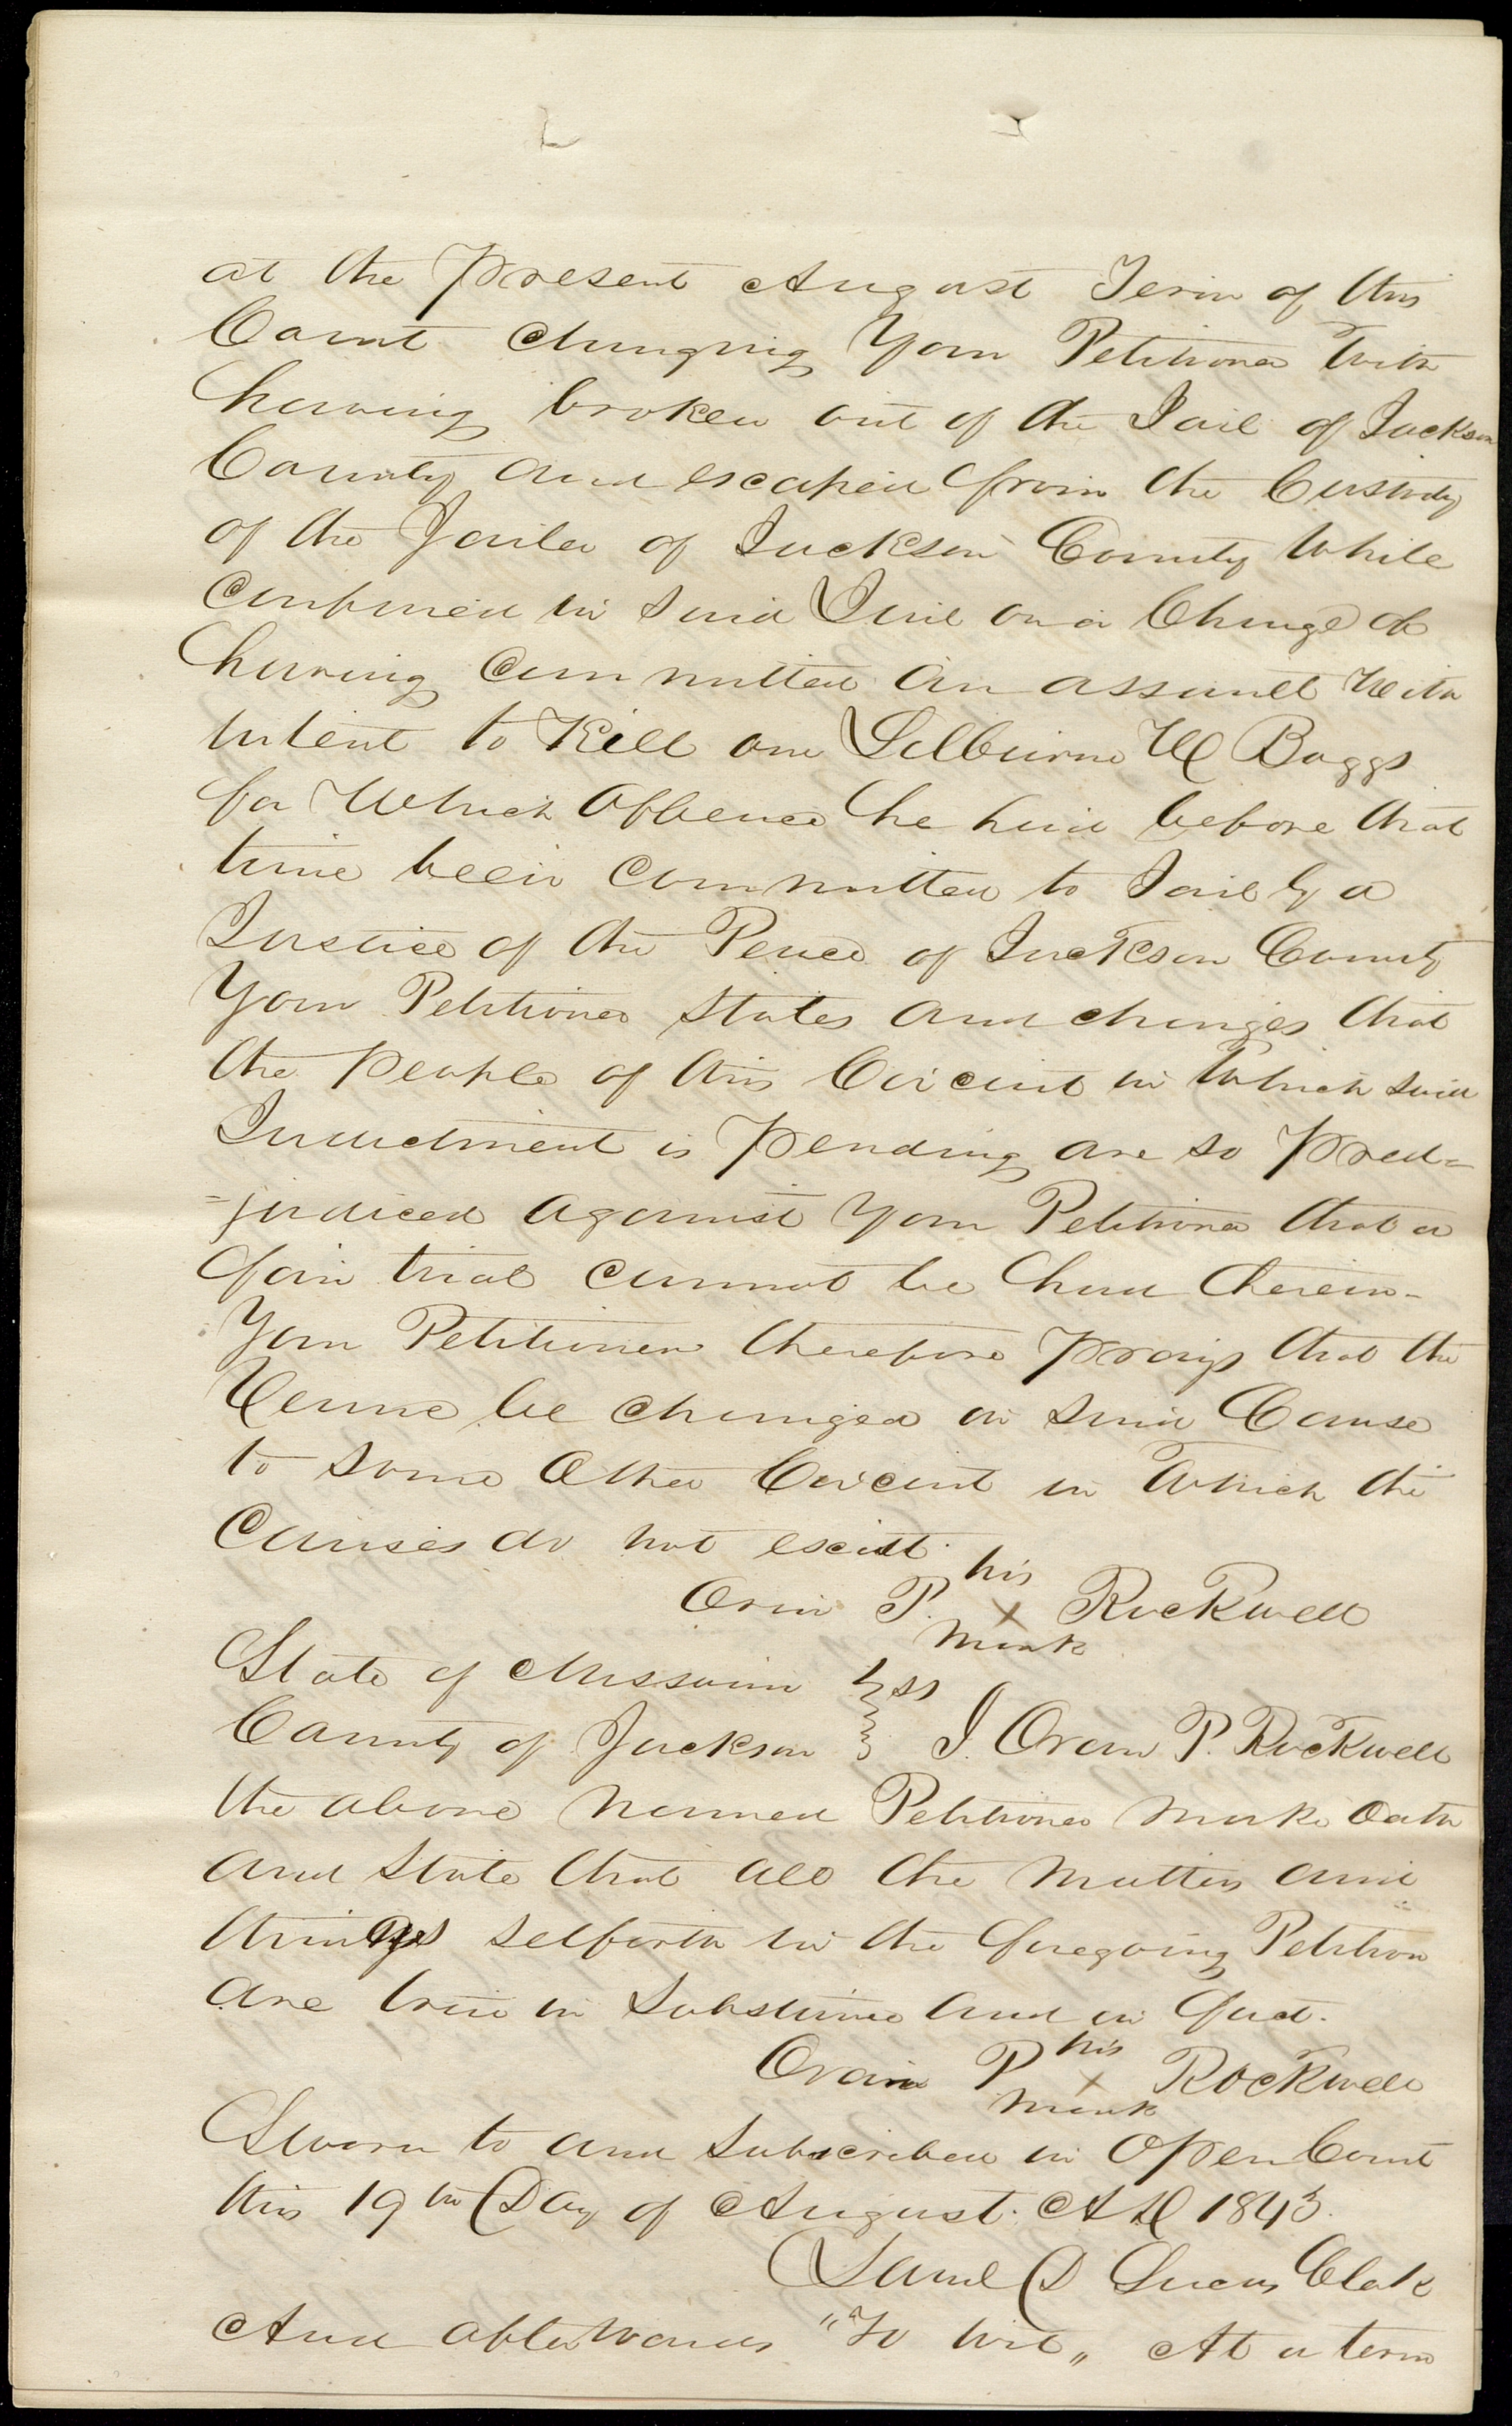 at the Present August Term of this
Court charging Your Petitioner With
having broken out of the Jail of Jackson
County and escaped from the Custody
of the Jailer of Jackson County While
Confined in said Jail on a Charge of
having Committed An assault With
intent to Kill one Lilburne W Boggs
for Which Offence he had before that
time been Committed to Jail by a
Justice of the Peace of Jackson County
Your Petitioner States And charges that
the People of this Circuit in Which said
Indictment is Pending are so Pred=
=judiced against Your Petitioner that a
fair trial cannot be had therein-
Your Petitioner therefore Prays that the
Venue be changed in said Cause
to some Other Circuit in Which the
Causes do not exist.
Orin P. his X mark Rockwell
State of Missouri } ss
County of Jackson } I. Oran P. Rockwell
the above named Petitioner make Oath
and State that all the matters and
things setforth in the foregoing Petition
are true in Substance and in fact.
Orain P his X mark Rockwell
Sworn to and subscribed in Open Court
this 19th Day of August. AD 1843.
Saml D Lucas Clerk
And afterwards "To wit" At a term